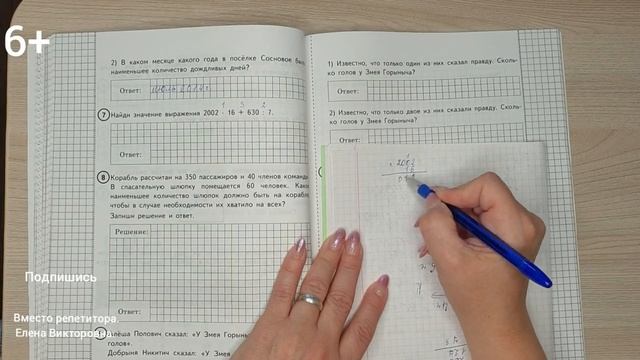 6+
2) В каком месяце какого года в посёлке Сосновое было
наименьшее количество дождливых дней?
Ответ: июль 2014г
1 3 2
7 Найди значение выражения 2002 · 16 + 630 : 7.
Ответ:
8 Корабль рассчитан на 350 пассажиров и 40 членов команды
В спасательную шлюпку помещается 60 человек. Какое
наименьшее количество шлюпок должно быть на корабле
чтобы в случае необходимости их хватило на всех?
Запиши решение и ответ.
Решение:
Ответ:
Алёша Попович сказал: «У Змея Горыны
голов».
Добрыня Никитич сказал: «У Змея Гор
1) Известно, что только один из них сказал правду. Сколь-
ко голов у Змея Горыныча?
Ответ:
2) Известно, что только двое из них сказали правду. Сколь-
ко голов у Змея Горыныча?
Ответ:
2002
16
Подпишись
Вместо репетитора.
Елена Викторовна